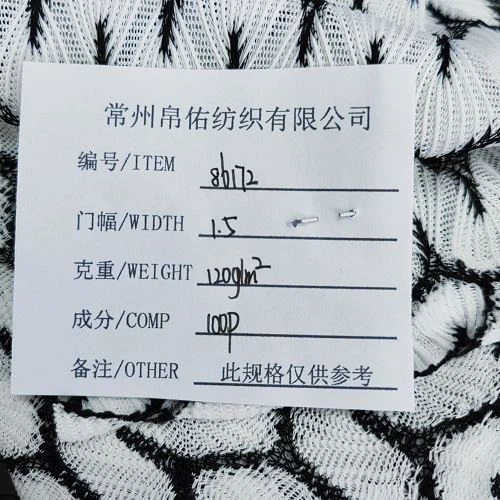 常州帛佑纺织有限公司
编号/ITEM 86172
门幅/WIDTH 1.5
克重/WEIGHT 120g/m²
成分/COMP 100P
备注/OTHER 此规格仅供参考